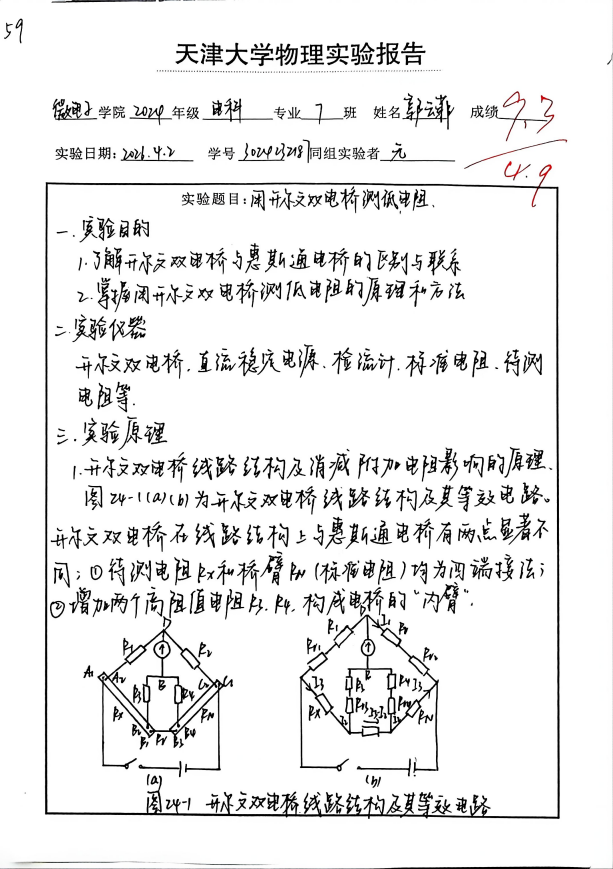 59
天津大学物理实验报告
微电子学院 2024 年级 电科 专业 7 班 姓名 郭云菲 成绩 9.3
4.9
实验日期: 2026.4.2 学号 3024232187 同组实验者 无
实验题目:用开尔文双电桥测低电阻.
一.实验目的
1.了解开尔文双电桥与惠斯通电桥的区别与联系
2.掌握用开尔文双电桥测低电阻的原理和方法
二.实验仪器
开尔文双电桥.直流稳定电源.检流计.标准电阻.待测
电阻等.
三.实验原理
1.开尔文双电桥线路结构及消减附加电阻影响的原理.
图24-1(a)(b)为开尔文双电桥线路结构及其等效电路。
开尔文双电桥在线路结构上与惠斯通电桥有两点显著不
同:①待测电阻Rx和桥臂RN(标准电阻)均为四端接法;
②增加两个高阻值电阻R3.R4.构成电桥的“内臂”.
R1 R2
A1 A2 B C2 C1
R3 R4
Rx RN
B2 B1 B3 B4
(a)
R1 I1 R2
I3 B I3
Rx R3 R4 RN
(b)
图24-1 开尔文双电桥线路结构及其等效电路